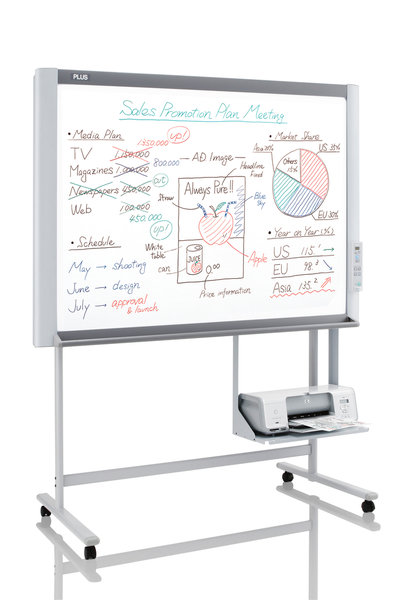 PLUS
Sales Promotion Plan Meeting
• Media Plan
1.350.000 up!
TV 1.150.000
Magazines 1.000.000 800.000
Newspapers 450.000 cut
Web 100.000
450.000
up!
• Schedule
May → shooting
June → design
July → approval
& launch
AD Image
Headline
Fixed
Always Pure!!
Straw
Blue
Sky
White
table
can
JUICE
Apple
Price information
• Market Share
Asia 20%
US 35%
Others
15%
EU 30%
• Year on Year (%)
US 115.4
EU 98.3
Asia 135.2